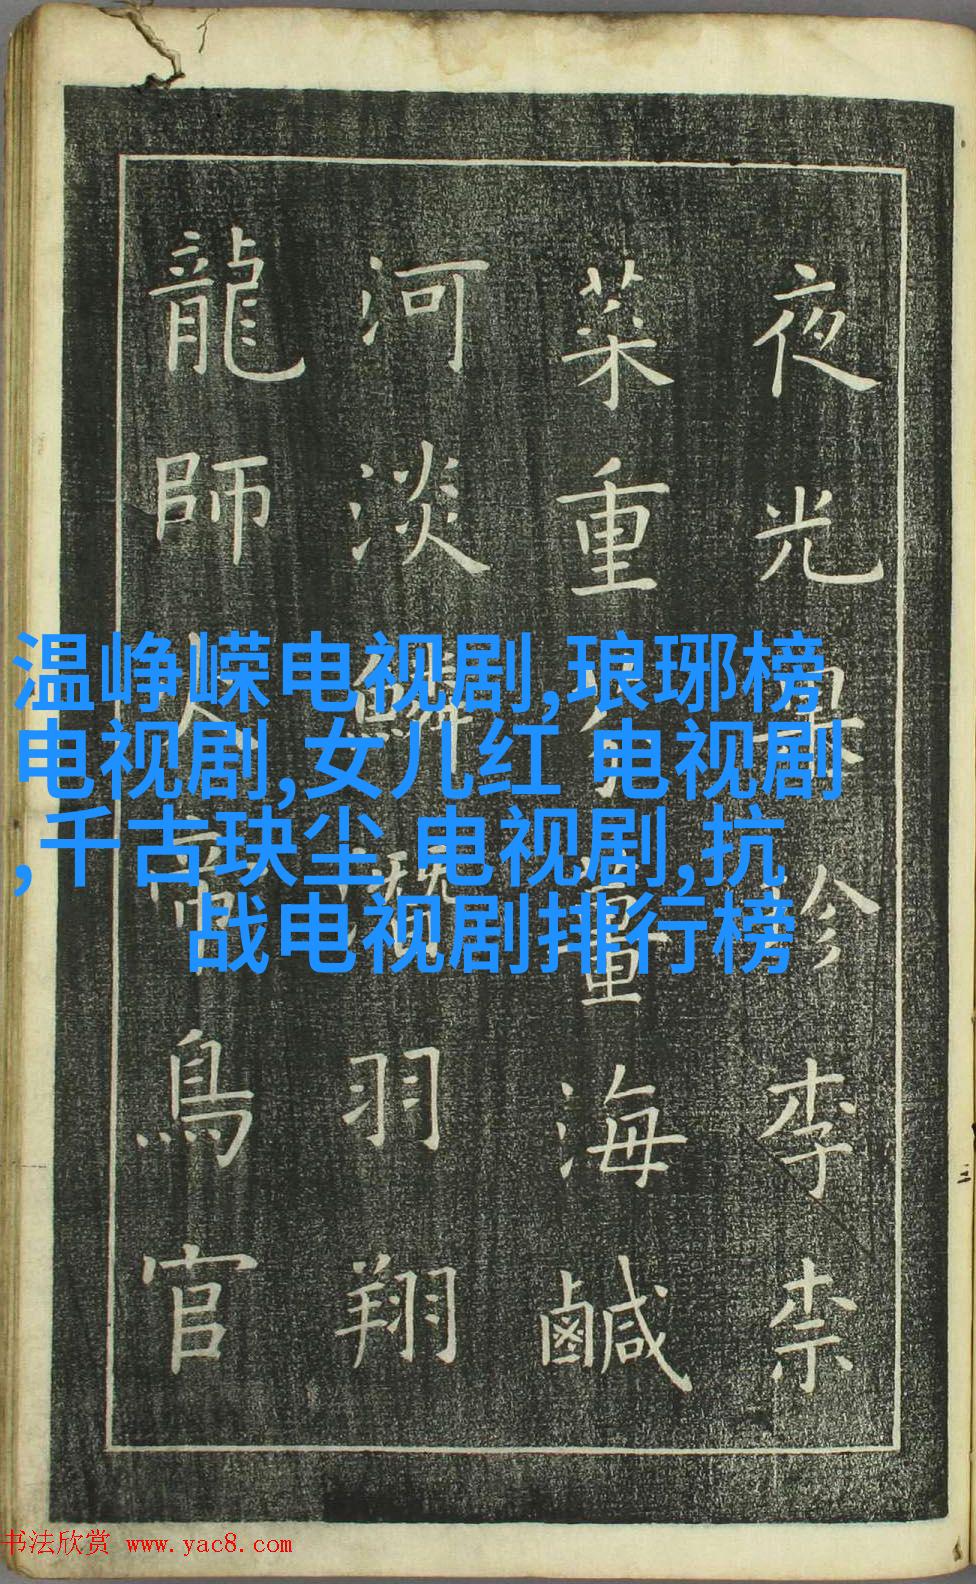 夜光果珍李柰
菜重芥薑海鹹
河淡鱗潛羽翔
龍師火帝鳥官
温峥嵘电视剧,琅琊榜
电视剧,女儿红 电视剧
,千古玦尘 电视剧,抗
战电视剧排行榜
书法欣赏 www.yac8.com